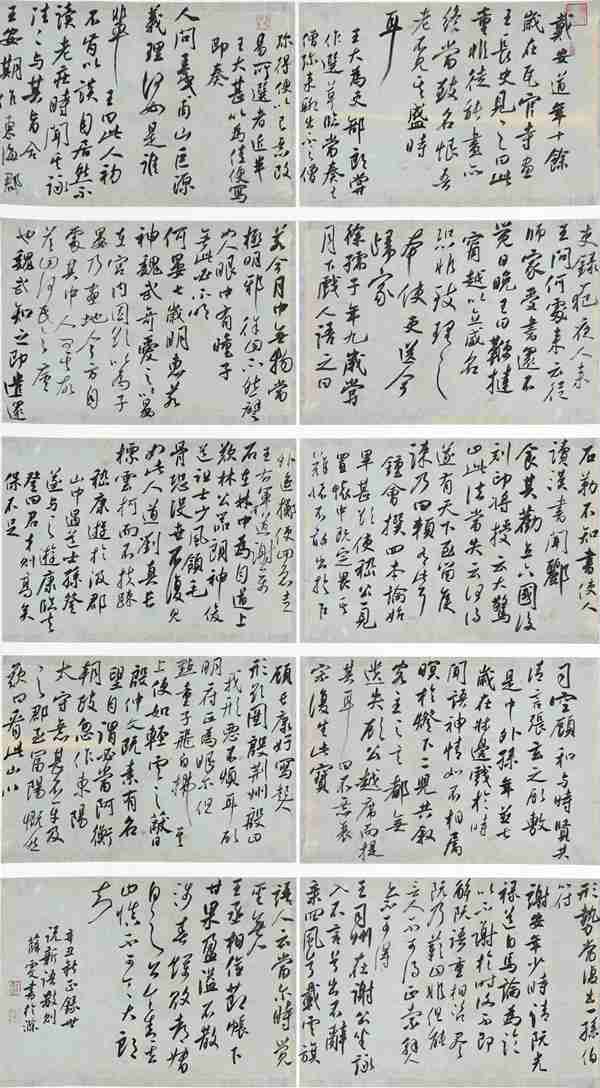 戴安道年十餘
歲在瓦官寺畫
王長史見之曰此
童非徒能畫亦
終當致名恨吾
老不見其盛時
耳
王大為吏部郎嘗
作選草臨當奏王
僧彌來聊出示之僧
彌得便以己意改
易所選者近半
王大甚以為佳便寫
即奏
人問王夷甫山巨源
義理何如是誰
輩王曰此人初
不肯以談自居然不
讀老莊時聞其詠
往往與其旨合
王安期作東海郡
吏錄一犯夜人來
王問何處來云從
師家受書還不
覺日晚王曰鞭撻
甯越以立威名
恐非致理之
本使吏送令
歸家
徐孺子年九歲嘗
月下戲人語之曰
若令月中無物當
極明邪徐曰不然譬
如人眼中有瞳子
無此必不明
何晏七歲明惠若
神魏武奇愛之以晏
在宮內因欲以為子
晏乃畫地令方自
處其中人問其故
答曰何氏之廬
也魏武知之即遣還
石勒不知書使人
讀漢書聞酈
食其勸立六國後
刻印將授之大驚
曰此法當失云何得
遂有天下至留侯
諫乃曰賴有此耳
鍾會撰四本論始
畢甚欲使嵇公一見
置懷中既定畏其
難懷不敢出於戶
外遙擲便回急走
王右軍道謝萬
石在林中為自遒上
歎林公器朗神俊
道祖士少風領毛
骨恐沒世不復見
如此人道劉真長
標雲柯而不扶疎
嵇康遊於汲郡
山中遇道士孫登
遂與之遊康臨去
登曰君才則高矣
保不足
司空顧和與時賢共
清言張玄之顧敷
是中外孫年並七
歲在牀邊戲於時
聞語神情如不相屬
瞑於燈下二兒共敘
客主之言都無
遺失顧公越席而提
其耳曰不意衰
宗復生此寶
顧長康好寫起人
形欲圖殷荊州殷曰
我形惡不煩耳顧曰
明府正為眼爾但明
點童子飛白拂其
上使如輕雲之蔽日
殷仲文既素有名
望自謂必當阿衡
朝政忽作東陽
太守意甚不平及
之郡至富陽慨然
歎曰看此山川
形勢當復出一孫伯
符
謝安年少時請阮光
祿道白馬論為論
以示謝於時謝不即
解阮語重相咨盡
阮乃歎曰非但能
言人不可得正索解人
亦不可得
王司州在謝公坐詠
入不言兮出不辭
乘回風兮載雲旗
語人云當爾時覺
一坐無人
王丞相儉節帳下
甘果盈溢不散
涉春爛敗都督
白之公令舍去
曰慎不可令大郎
知
辛丑秋正錄世
說新語數則
薛雯書於深